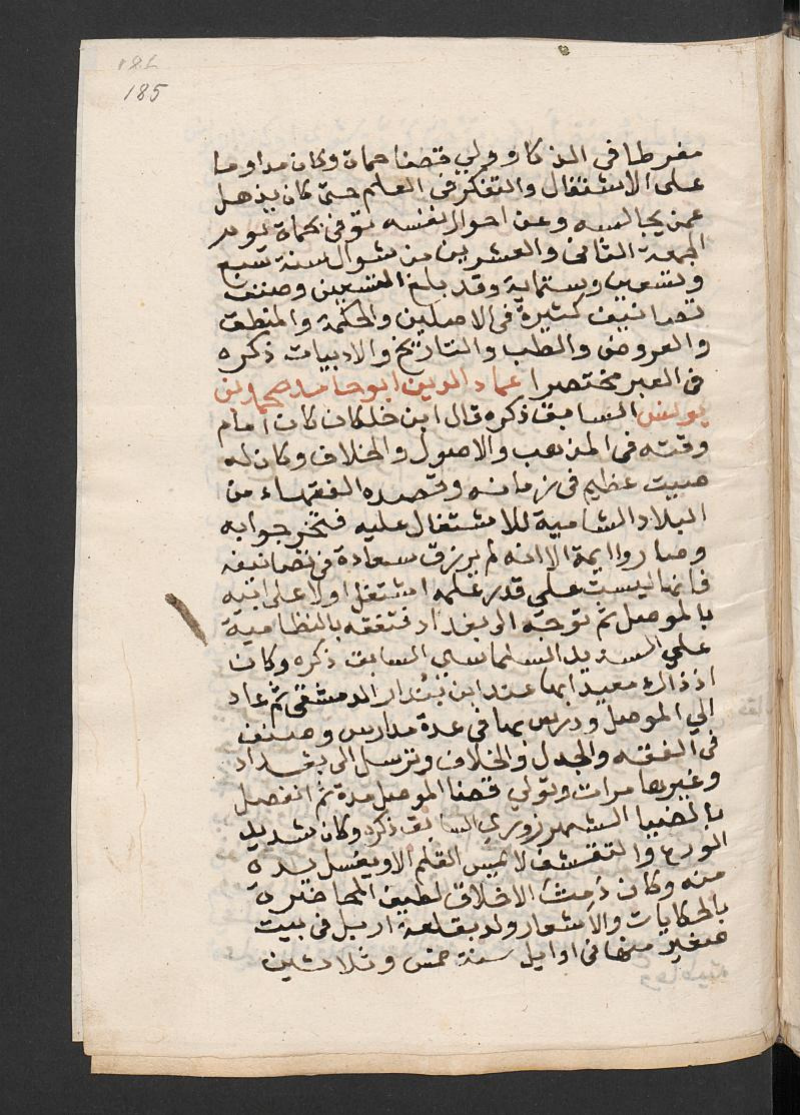 ١٨٤
185
مفرطا في الذكاء وولي قضا حماة وكان مداوما
على الاشتغال والتفكر في العلم حتى كان يذهل
عمن يجالسه وعن احوال نفسه توفى بحماة يوم
الجمعة الثاني والعشرين من شوال سنة سبع
وتسعين وستماية وقد بلغ التسعين وصنف
تصانيف كثيرة في الاصلين والحكمة والمنطق
والعروض والطب والتاريخ والادبيات ذكره
في العبر مختصرا عماد الدين ابو حامد محمد بن
يونس السابق ذكره قال ابن خلكان كان امام
وقته في المذهب والاصول والخلاف وكان له
صيت عظيم في زمانه وقصده الفقهاء من
البلاد الشامية للاشتغال عليه فتخرجوا به
وصاروا ايمة الا انه لم يرزق سعادة في تصانيفه
فانها ليست على قدر علمه اشتغل اولا على ابيه
بالموصل ثم توجه الى بغداد فتفقه بالنظامية
على السديد السلماسي السابق ذكره وكان
اذ ذاك معيدا بها عند ابن بندار الدمشقي ثم عاد
الي الموصل ودرس بها في عدة مدارس وصنف
في الفقه والجدل والخلاف وترسل الى بغداد
وغيرها مرات وتولي قضا الموصل مدة ثم انفصل
بالضيا الشهرزوري السابق ذكره وكان شديد
الورع والتقشف لا يمس القلم الا ويغسل يده
منه وكان دمث الاخلاق لطيف المحاضرة
بالحكايات والاشعار ولد بقلعة اربل في بيت
صغير منها في اوايل سنة خمس وثلاثين